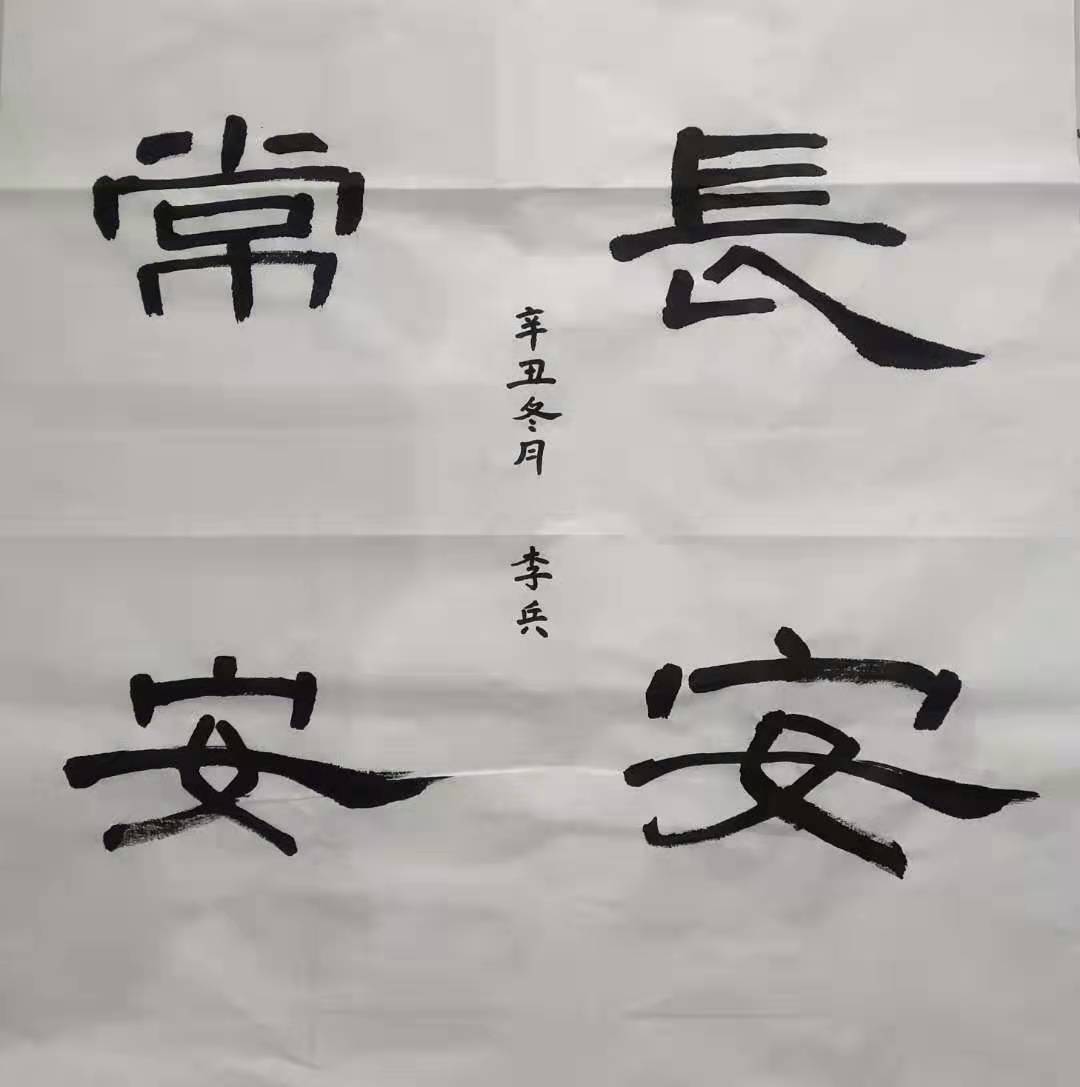 長安
辛丑冬月 李兵
常安